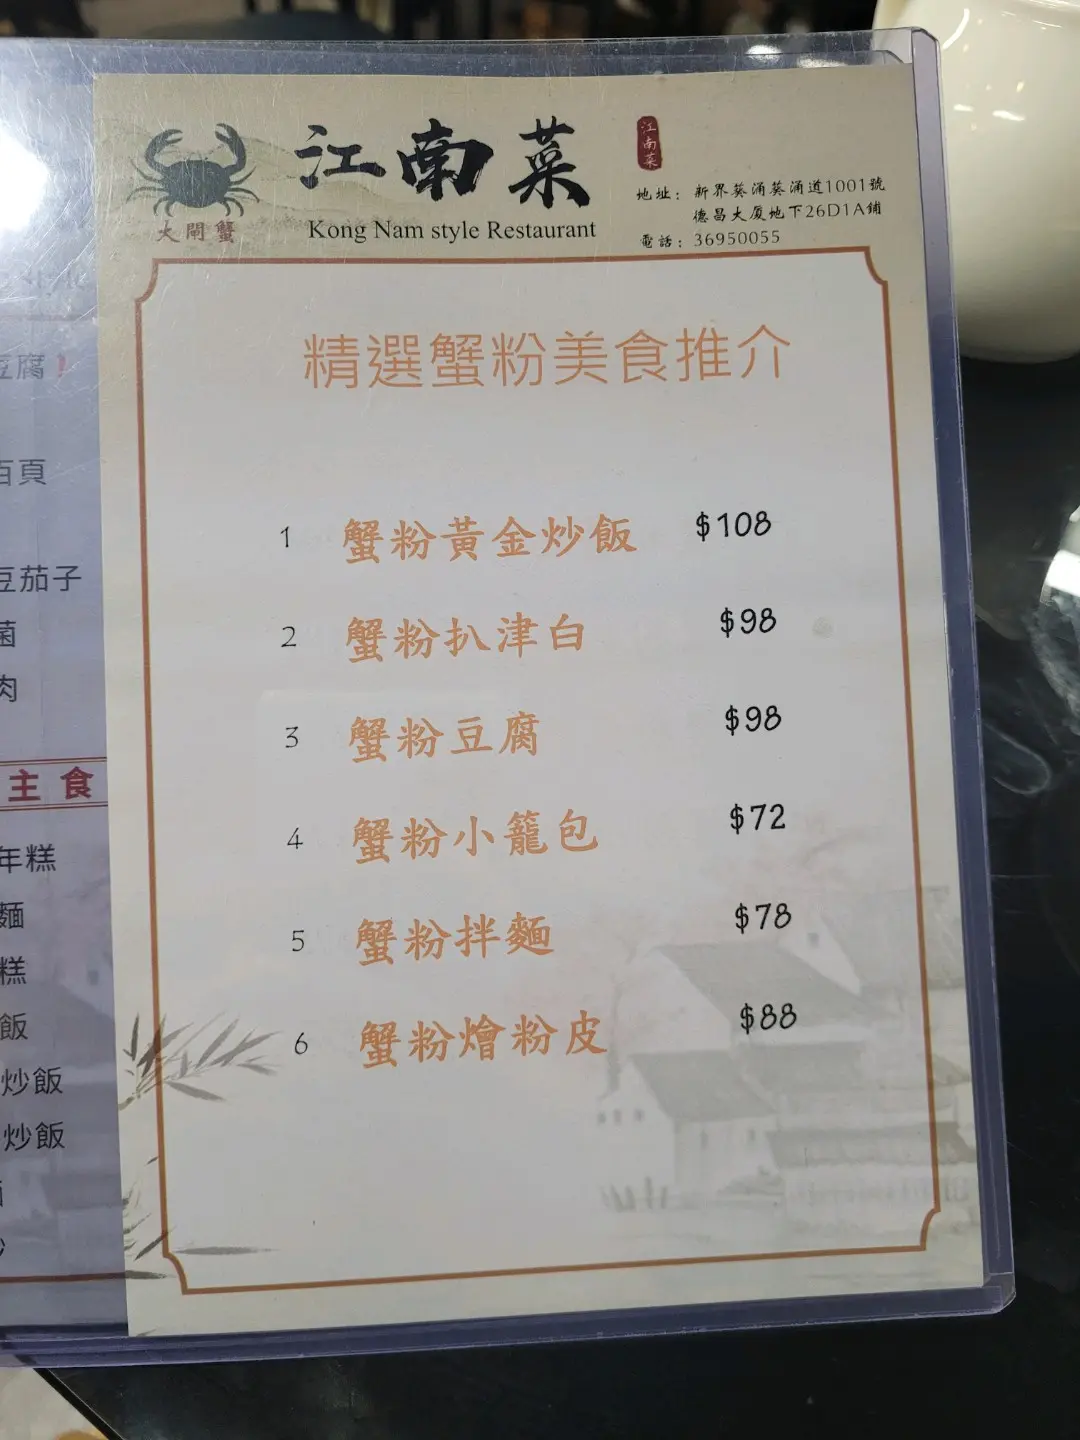 江南菜
Kong Nam style Restaurant
大閘蟹
江南菜
地址：新界葵涌葵涌道1001號
德昌大厦地下26D1A鋪
電話：36950055
精選蟹粉美食推介
1 蟹粉黃金炒飯 $108
2 蟹粉扒津白 $98
3 蟹粉豆腐 $98
4 蟹粉小籠包 $72
5 蟹粉拌麵 $78
6 蟹粉燴粉皮 $88
豆腐！
百頁
豆茄子
菌
肉
主食
年糕
麵
糕
飯
炒飯
炒飯